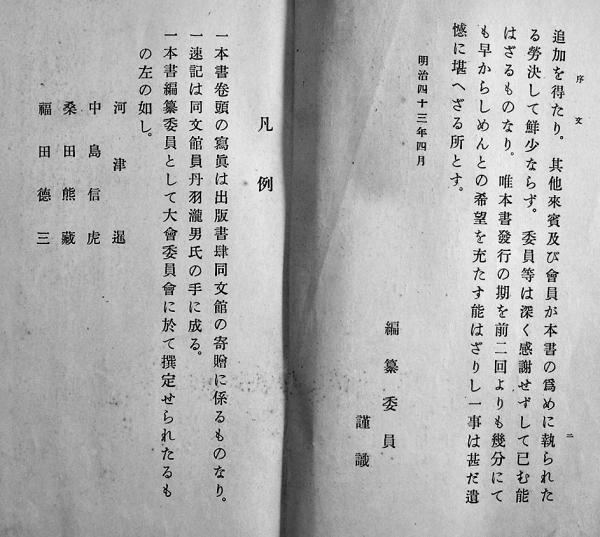 序文
二
追加を得たり。其他來賓及び會員が本書の爲めに執られた
る勞決して鮮少ならず。委員等は深く感謝せずして已む能
はざるものなり。唯本書發行の期を前二回よりも幾分にて
も早からしめんとの希望を充たす能はざりし一事は甚だ遺
憾に堪へざる所とす。
明治四十三年四月
編纂委員
謹識
凡例
一本書卷頭の寫眞は出版書肆同文館の寄贈に係るものなり。
一速記は同文館員丹羽瀧男氏の手に成る。
一本書編纂委員として大會委員會に於て撰定せられたるも
の左の如し。
河津暹
中島信虎
桑田熊藏
福田德三